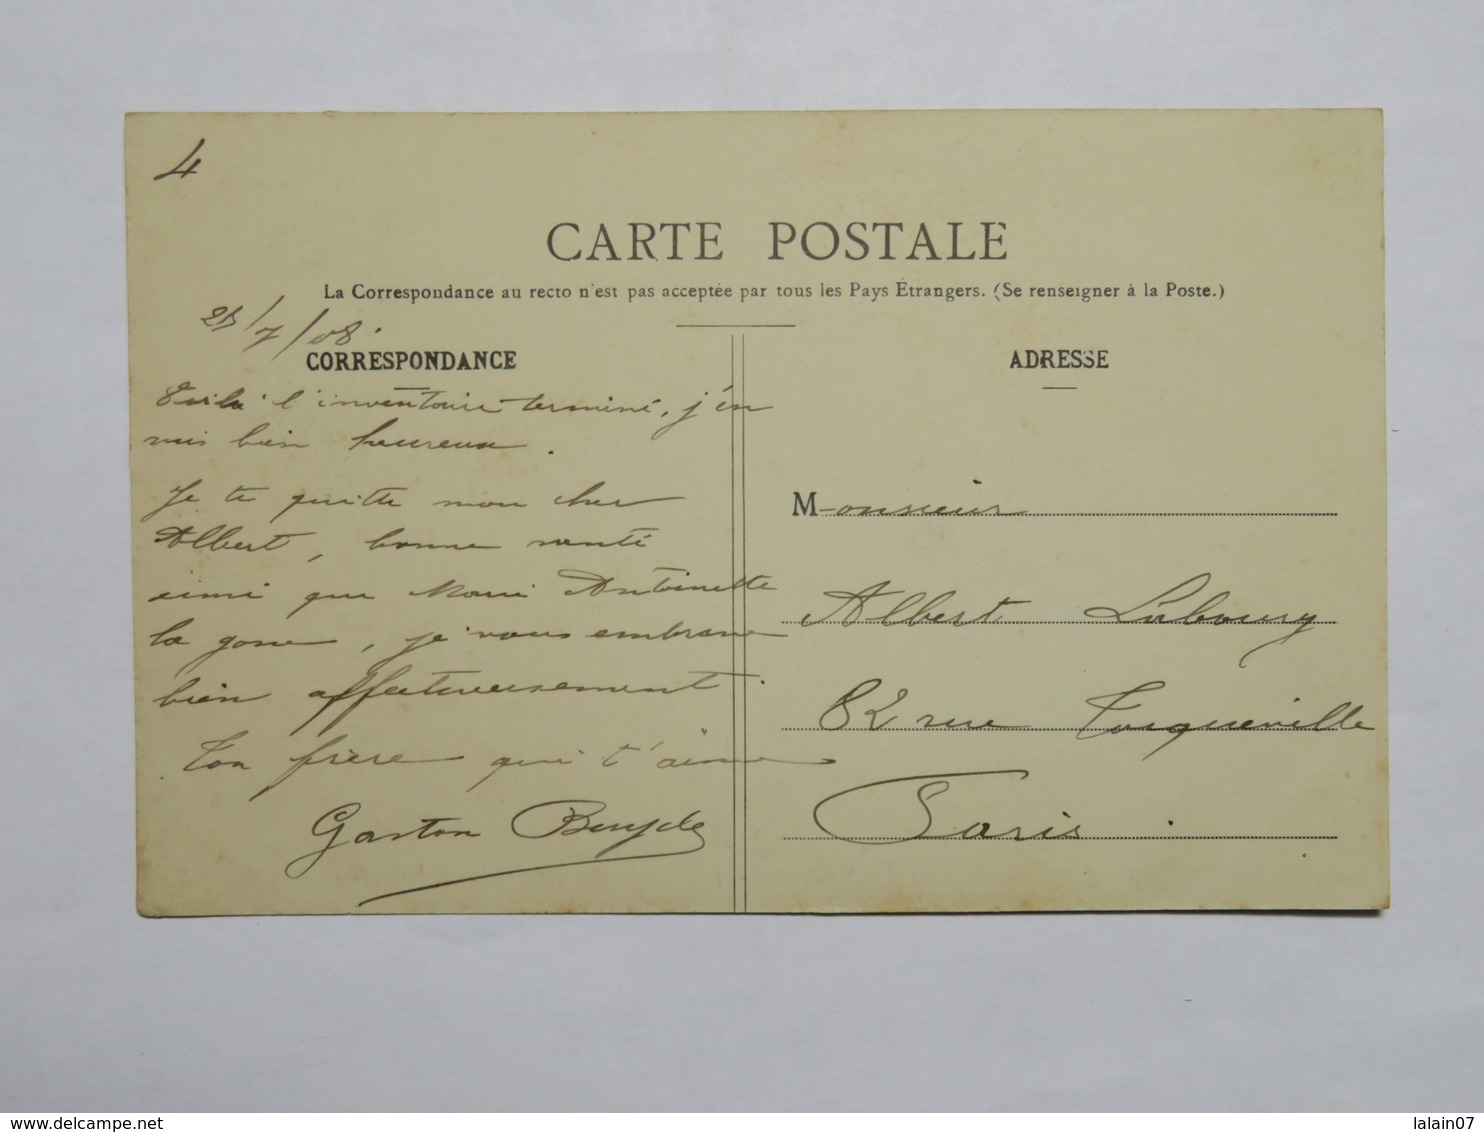 4
CARTE POSTALE
La Correspondance au recto n'est pas acceptée par tous les Pays Étrangers. (Se renseigner à la Poste.)
25/7/08.
CORRESPONDANCE
Voilà l'inventaire terminé, j'en
suis bien heureux.
Je te quitte mon cher
Albert, bonne santé
ainsi que Marie Antoinette
la gosse, je vous embrasse
bien affectueusement.
Ton frère qui t'aime
Gaston
ADRESSE
Monsieur
Albert Laboury
82 rue Tocqueville
Paris.
www.delcampe.net
lalain07